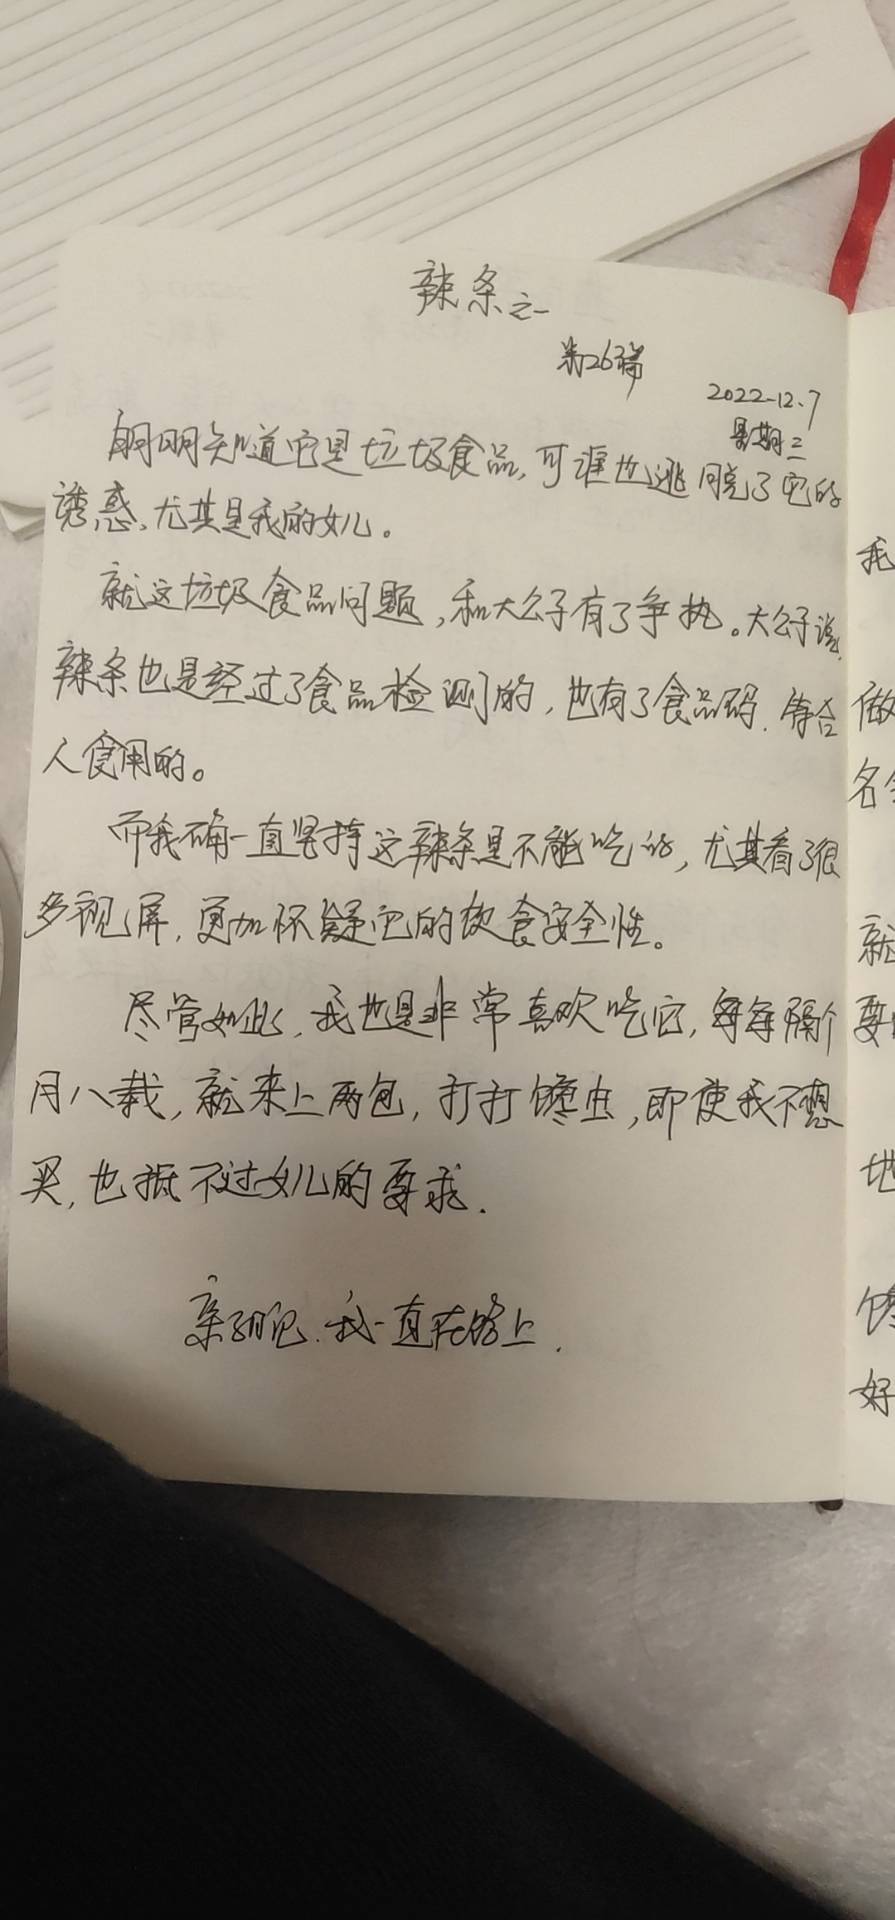 辣条之一
第26篇
2022-12.7
星期三
明明知道它是垃圾食品,可谁也逃脱了它的
诱惑、尤其是我的女儿。
就这垃圾食品问题,和大公子有了争执。大公子说,
辣条也是经过了食品检测的,也有了食品码、符合
人食用的。
而我确一直坚持这辣条是不能吃的,尤其看了很
多视屏,更加怀疑它的饮食安全性。
尽管如此,我也是非常喜欢吃它,每每隔个
月八载,就来上两包,打打馋虫,即使我不想
买,也抵不过女儿的要求.
我一直在路上.
我
做
名
就
要
地
馋
好